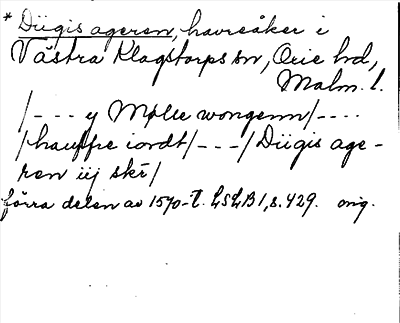 * Diigis ageren, havreåker i
Västra Klagstorps sn, Oxie hd,
Malm. l.
/--- y Mølle wongenn/----
/hauffre iordt/---/Diigis age-
ren iij skr/
förra delen av 1570-t. LSLB1, s. 429. orig.